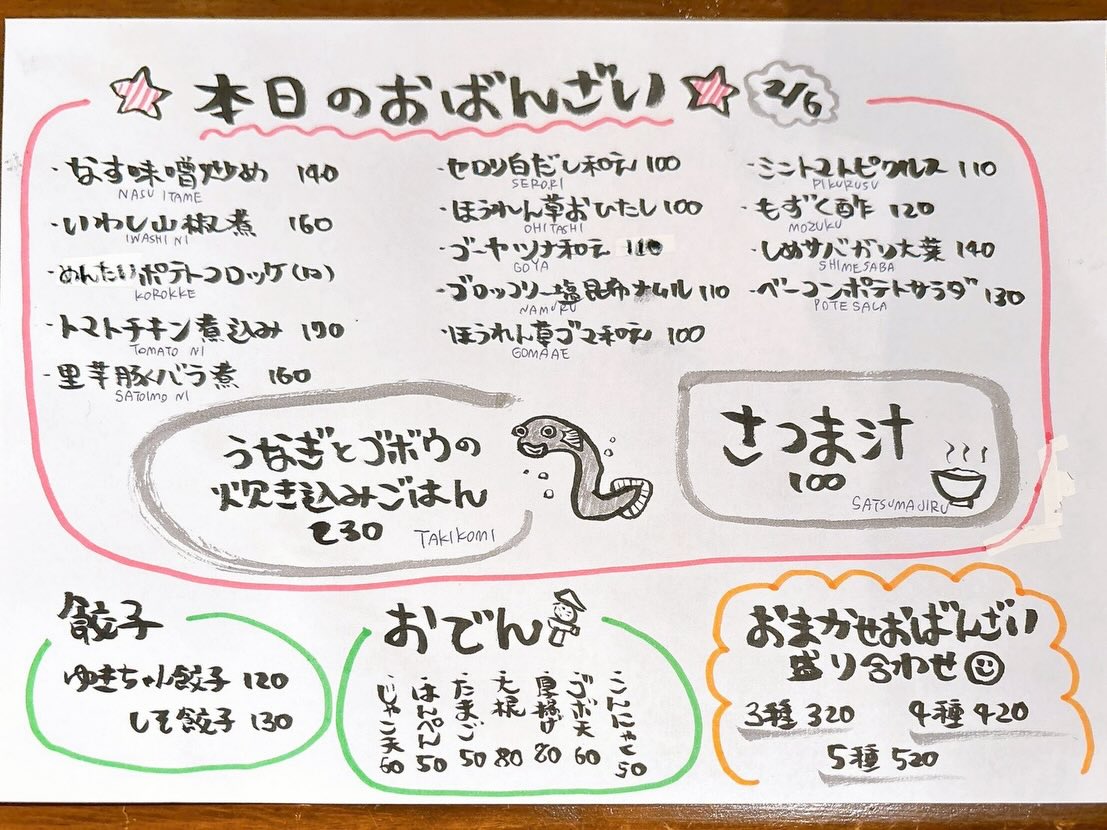 本日のおばんざい 2/6
・なす味噌炒め 140
NASU ITAME
・いわし山椒煮 160
IWASHI NI
・めんたいポテトコロッケ(1コ)
KOROKKE
・トマトチキン煮込み 170
TOMATO NI
・里芋豚バラ煮 160
SATOIMO NI
・セロリ白だし和え 100
SERORI
・ほうれん草おひたし 100
OHITASHI
・ゴーヤツナ和え 110
GOYA
・ブロッコリー塩昆布ナムル 110
NAMURU
・ほうれん草ゴマ和え 100
GOMAAE
・ミニトマトピクルス 110
PIKURUSU
・もずく酢 120
MOZUKU
・しめサバがり大葉 140
SHIMESABA
・ベーコンポテトサラダ 130
POTESALA
うなぎとゴボウの
炊き込みごはん
230 TAKIKOMI
さつま汁
100
SATSUMAJIRU
餃子
ゆきちゃん餃子 120
しそ餃子 130
おでん
こんにゃく 50
ゴボ天 60
厚揚げ 80
大根 80
たまご 50
はんぺん 50
じゃこ天 60
おまかせおばんざい
盛り合わせ
3種 320 4種 420
5種 520